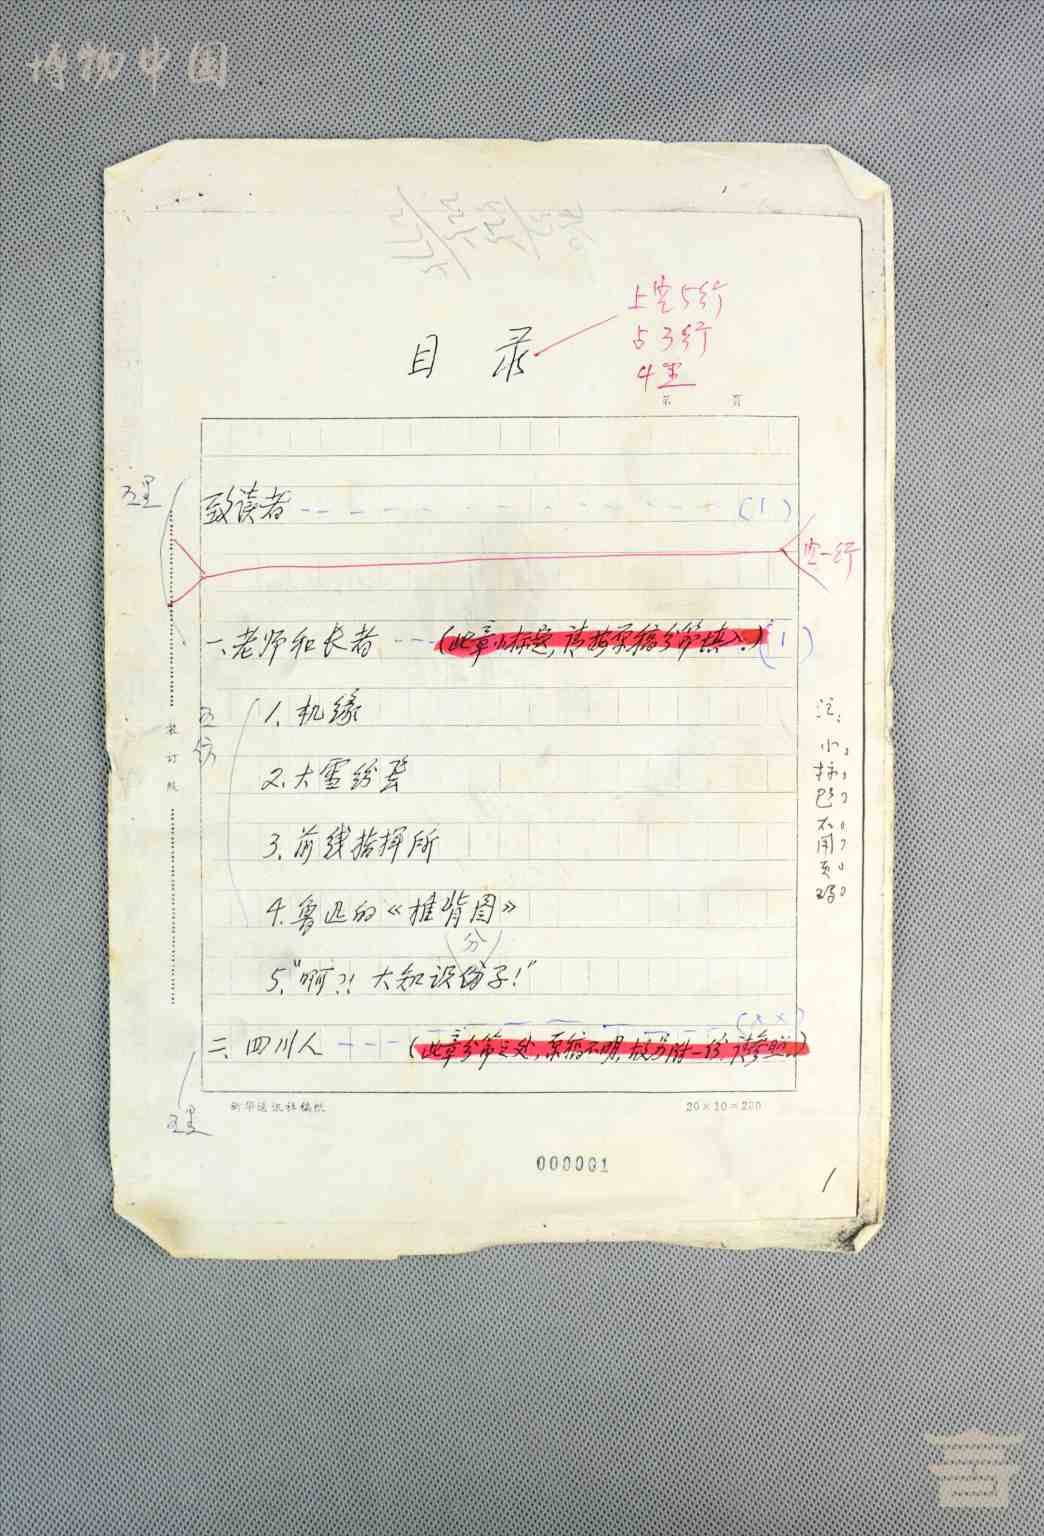 博物中国
上空5行
占3行
4黑
目录
第 页
五黑
致读者 (1)
空一行
一、老师和长者 (此章小标题,请按原稿分节填入。) (1)
五仿
1、机缘
2、大雪纷飞
3、前线指挥所
4、鲁迅的《推背图》
(分)
5、"啊?! 大知识份子!"
(××)
二、四川人 (此章分节之处,原稿不明,故另附一份,请参照。)
五黑
装订线
注:小标题不用页码
新华通讯社稿纸
20×10=200
000001
1